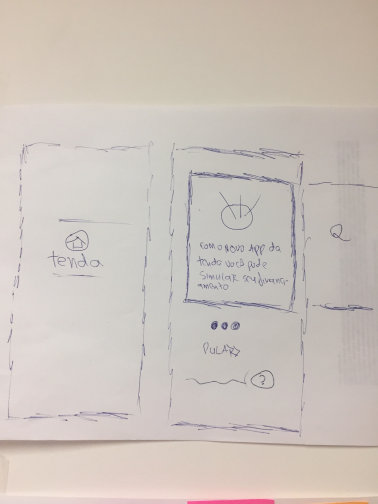 tenda
com o novo App da
tenda você pode
simular seu financi-
amento
PULAR
?